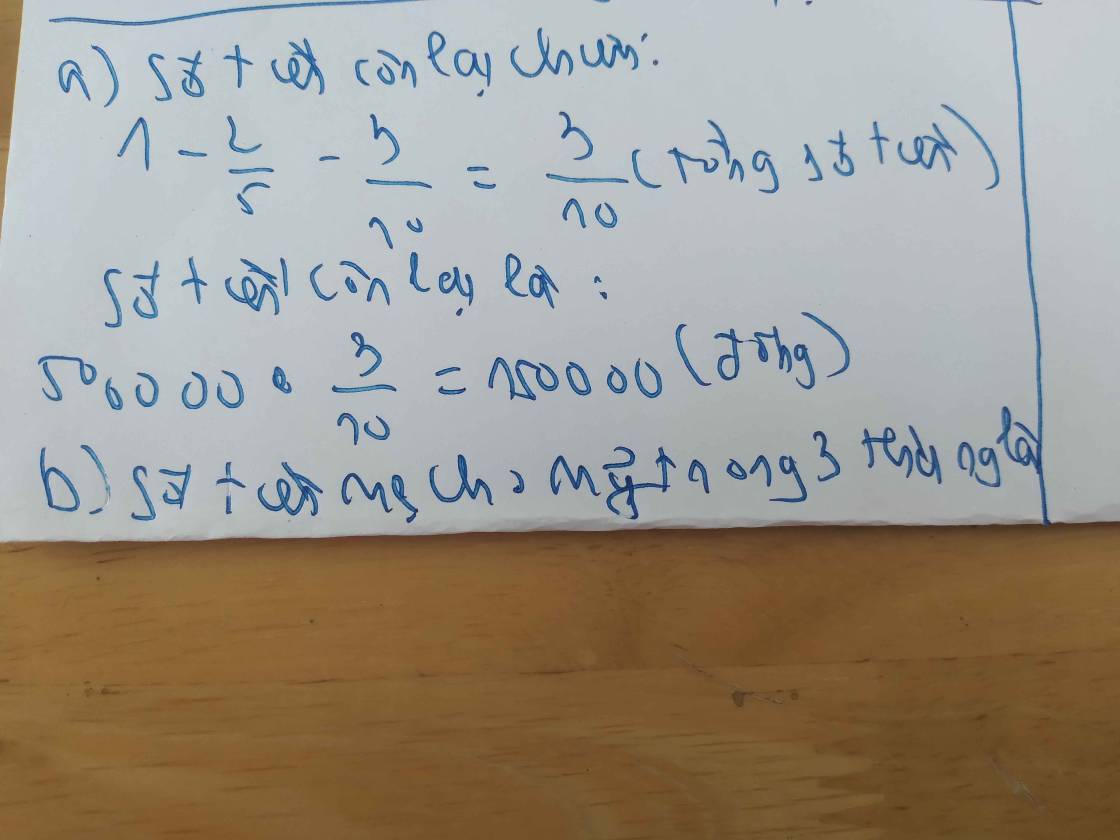 a) Số tiền còn lại chiếm:
1 - 2/5 - 3/10 = 3/10 (tổng số tiền)
Số tiền còn lại là :
500000 . 3/10 = 150000 (đồng)
b) Số tiền mẹ cho Mỹ trong 3 tháng là